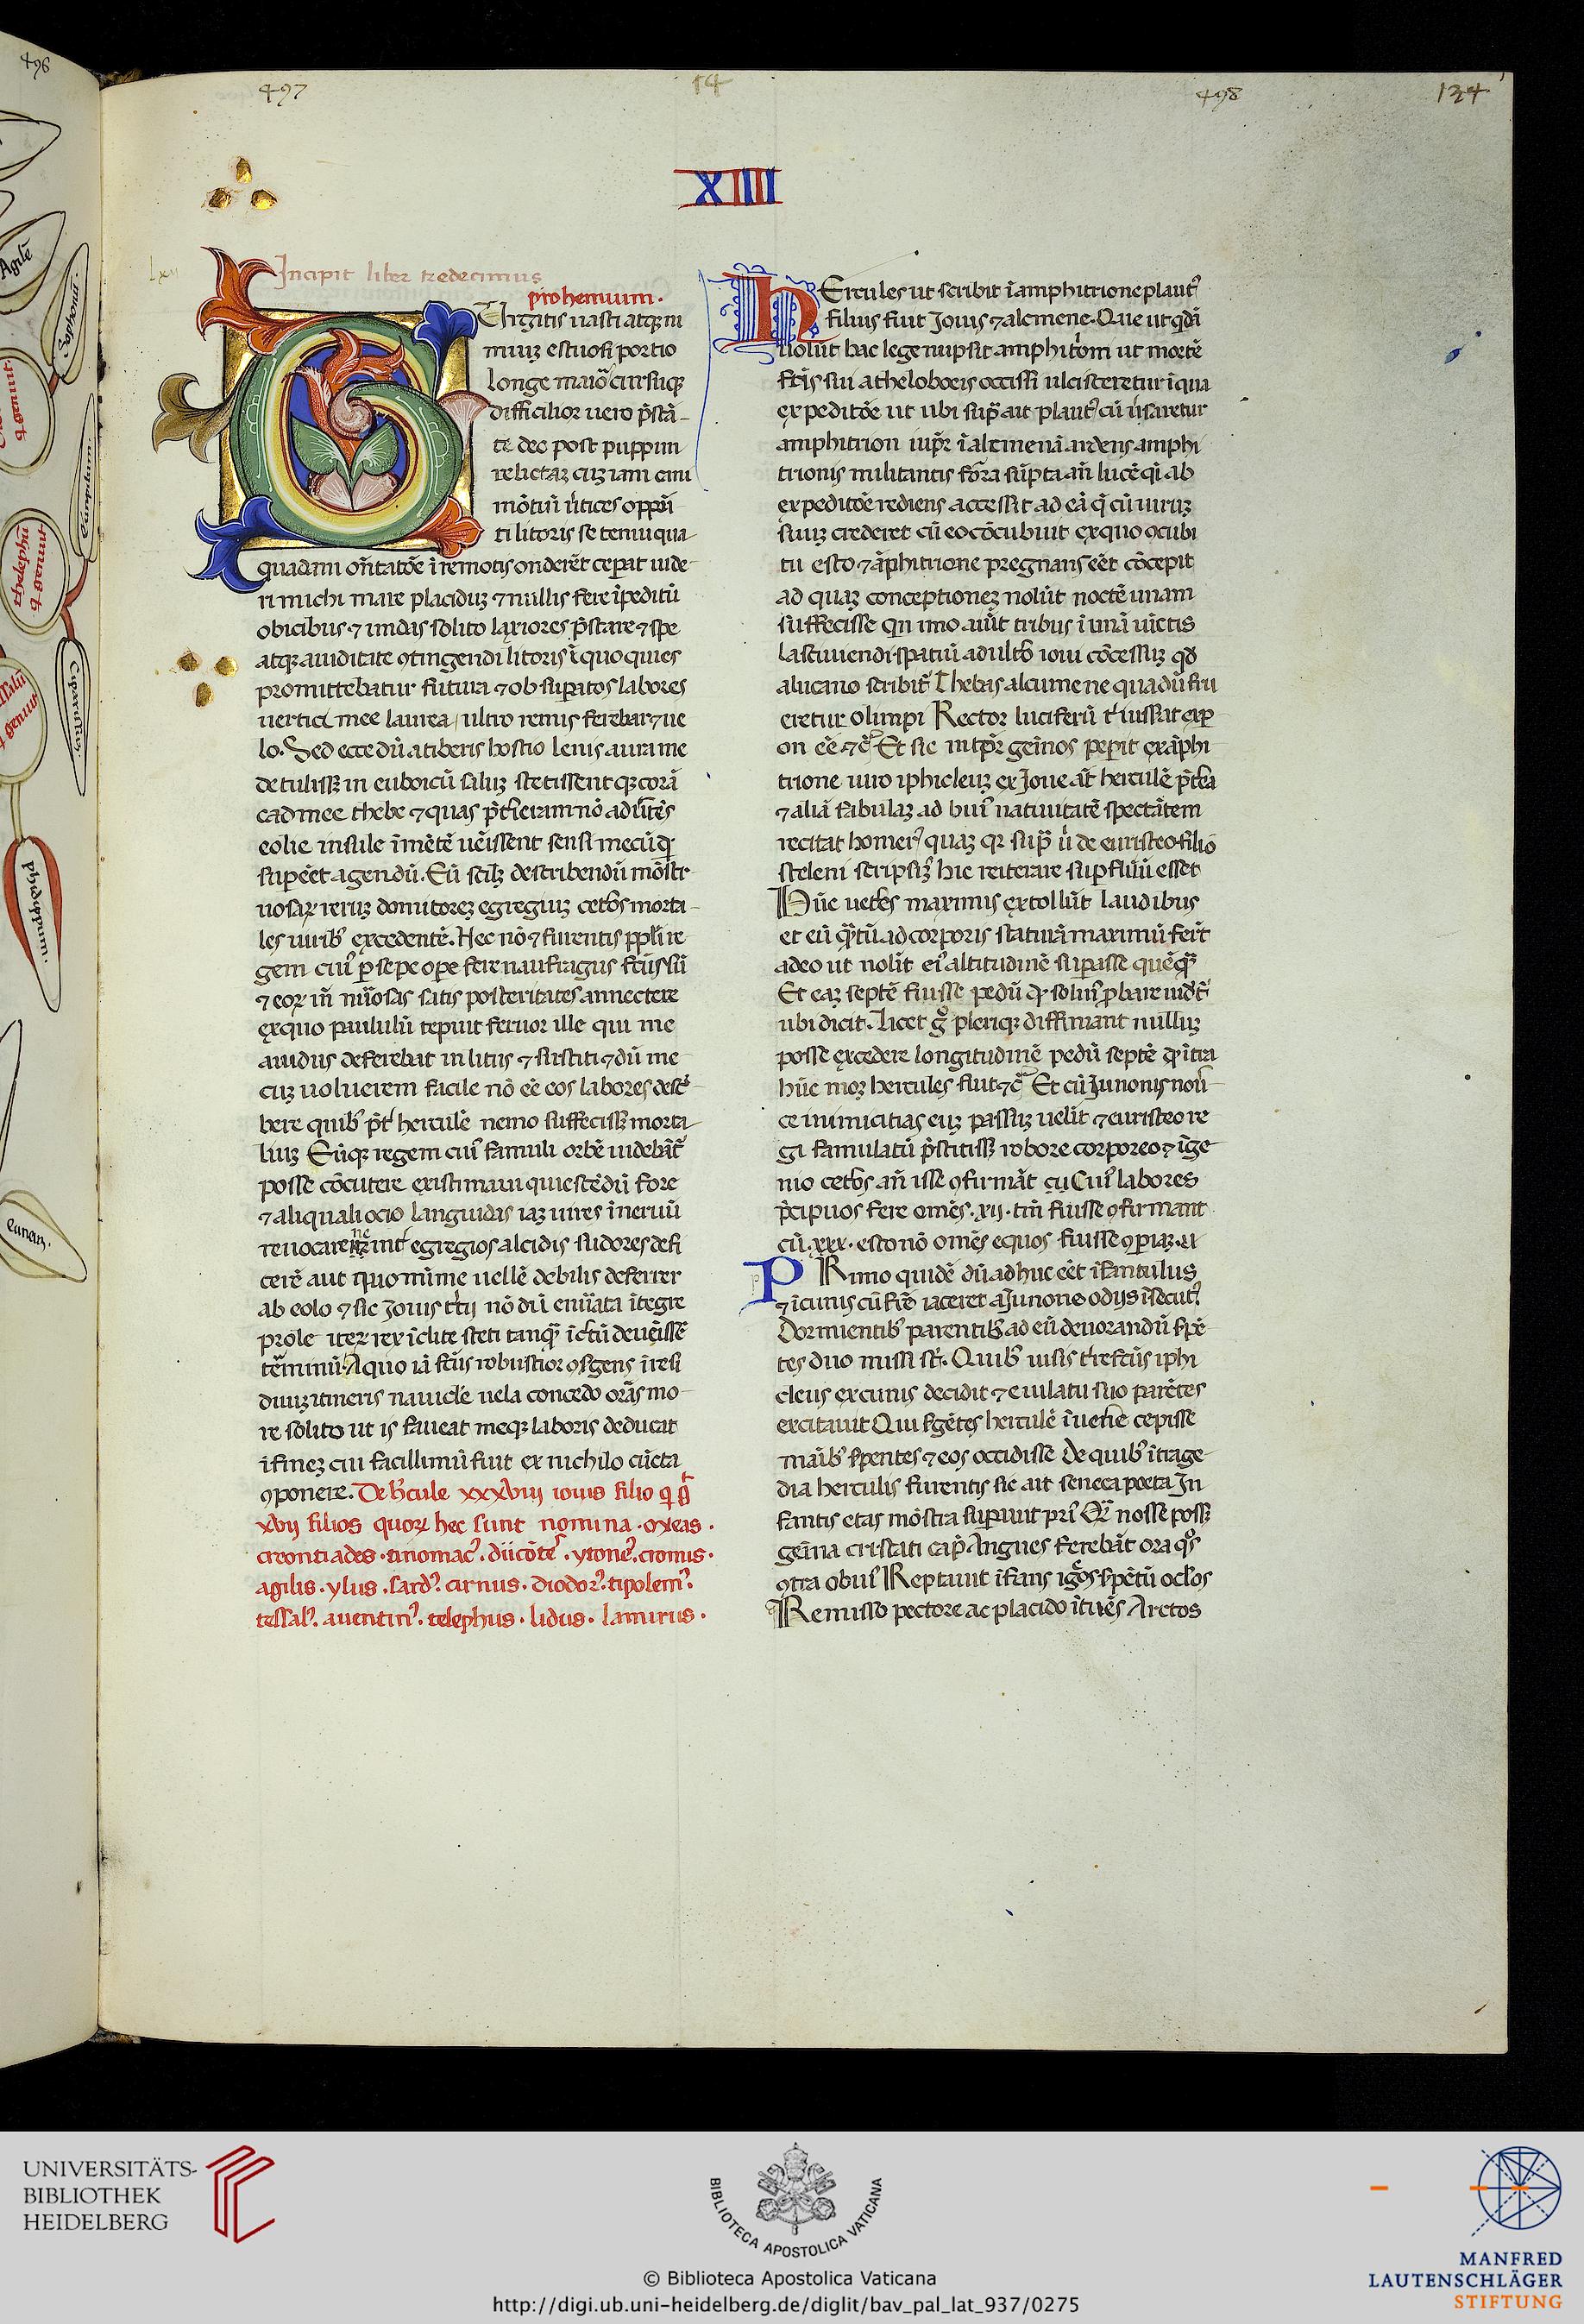 496
497
14
498
134
XIIII
Incipit liber tredecimus
prohemium.
Urgitis uasti atqꝫ ni
miuꝫ estuosi portio
longe maior̃ cursuqꝫ
difficilior uero p̃stã-
te deo post puppim
relictaꝫ cuꝫ iam emi
mõtiũ ũtices oppñ
ti litoris se tenui qua-
quadam oñtatõe ĩ remotis onderẽt ceperat uide-
ri michi mare placiduꝫ ⁊ nullis fere ĩpeditũ
obicibus ⁊ undas solito laxiores p̃stare ⁊ spe
atqꝫ auiditate ꝯtingendi litoris ĩ quo quies
promittebatur futura ⁊ ob suꝑatos labores
uertici mee laurea, ultro remis ferebar ⁊ ue
lo. Sed ecce dũ a tiberis hostio lenis aura me
detulissꝫ in euboicũ salũꝫ stetissent qꝫ corã
cadmee thebe ⁊ quas p̃t̃ieram nõ aduẽtẽs
eolie insule ĩ mẽtẽ uẽissent sensi mecũ qꝫ
suꝑeẽt agendũ. Eũ scilꝫ describendũ mõstr
uosaꝝ reruꝫ domitoreꝫ egregiuꝫ cetõs morta-
les uiribꝰ excedentẽ. Nec nõ ⁊ furentis ppl̃i re
gem cuiꝰ ꝑ sepe ope fere naufragus fc̃us sũ
⁊ eoꝝ iñ nũosas satis posteritates annectere
exquo paululũ tepuit feruor ille qui me
auidius deferebat in litus ⁊ substiti ⁊ dũ me
cuꝫ uoluerem facile nõ eẽ eos labores desc̃-
bere quibꝰ p̃t̃ herculẽ nemo suffecissꝫ morta-
liuꝫ Eũqꝫ regem cuiꝰ famuli orbẽ uidebãt̃
posse cõcutere existimaui quiescẽdũ fore
⁊ aliquali ocio languidas iaꝫ uires ĩ neruũ
reuocare ne int̃ egregios alcidis sudores defi
cerẽ aut quo mĩme uellẽ debilis deferrer
ab eolo ⁊ sic Jouis t̃tij nõ dũ enũata ĩtegre
prole iteꝝ rex ĩclite steti tanqꝫ̃ ĩ c̃tũ deuẽissẽ
t̃minũ. A quo iã fc̃us robustior ꝯsgens ĩ resi
duuꝫ itineris nauicl̃e uela concedo orãs mo-
re solito ut is faueat meqꝫ laboris deducat
ĩ fineꝫ cui facillimũ fuit ex nichilo cũcta
ꝯponere. De h̃cule xxxviij iouis filio q̃ g̃
xvij filios quoꝝ hec sunt nomina. oxeas.
creontiades. tinomacꝰ. diicõteꝰ. ytoneꝰ. cromis.
agilis. ylus. sardꝰ. cirnus. diodorꝰ. tipolemꝰ.
tessalꝰ. auentinꝰ. telephus. lidus. lamirus.
hErcules ut scribit ĩ amphitrione plautꝰ
filius fuit Jouis ⁊ alcmene. Que ut qdã
uolũt hac lege nupsit amphit̃oni ut mortẽ
fc̃is sui a theloboeis occisi ulcisceretur ĩ qua
expeditõe ut ubi sup̃ ait plautꝰ cũ ũsaretur
amphitrion iupr̃ ĩ alcmenã ardens amphi
trionis militantis fõra sũpta añ lucẽ qi ab
expeditõe rediens accessit ad eã q̃ cũ uiruꝫ
suuꝫ crederet cũ eo cõcubuit ex quo ꝯcubi
tu esto ⁊ ãphitrione pregnans eẽt cõcepit
ad quaꝫ conceptioneꝫ nolũt noctẽ unam
suffecisse qn imo auũt tribus ĩ unã uĩctis
lasciuiendi spatiũ adultõ ioui cõcessuꝫ qd̃
a lucano scribit̃ Thebas alcumene qua dũ fru
eretur olimpi Rector luciferũ t̃ iussat exp
on eẽ ⁊c̃ Et sic int̃pr̃ gẽinos peꝑit ex ãphi-
trione uiro iphicleuꝫ ex Joue aũt herculẽ p̃t̃ea
⁊ aliã fabulaꝫ ad huiꝰ natiuitatẽ spectãtem
recitat homerꝰ quaꝫ qꝛ sup̃ ũ de euristeo filio
steleni scripsiꝫ hic reiterare supfluũ esset
Hũc uetẽs maximis extollũt laudibus
et eũ q̃tũ ad corporis staturã maximũ ferũt
adeo ut nolit eiꝰ altitudinẽ suꝑasse quẽqꝫ̃
Et eaꝫ septẽ fuisse pedũ qꝫ solinꝰ ꝓbare uidet̃
ubi dicit. Licet g̊ pleriqꝫ diffiniant nulluꝫ
posse excedere longitudinẽ pedũ septẽ qꝫ ĩtra
hũc moꝫ hercules fuit ⁊c̃ Et cũ Junonis nou̇-
ce inimicitias eiꝫ passuꝫ uelit ⁊ euristeo re
gi famulatũ p̃stitissꝫ robore corporeo ⁊ ĩge
nio cetõs añ isse ꝯfirmãt cũ Cuiꝰ labores
p̃cipuos fere omẽs. xij. tm̃ fuisse ꝯfirmant
cũ. xxx. esto nõ omẽs equos fuisse ꝯꝑiaꝫ. ũ
PRimo quidẽ dũ adhuc eẽt ĩfantulus
⁊ ĩ cunis cũ fr̃e iaceret a Junone odijs ĩsecutꝰ
Dormientibꝰ parentibꝰ ad eũ deuorandũ ẜpẽ-
tes duo missi st̃. Quibꝰ uisis t̃refc̃us iphi
cleus ex cunis decidit ⁊ eiulatu suo parẽtes
excitauit Qui ẜgẽtes herculẽ ĩ uet̃e cepisse
maĩbꝰ ẜpentes ⁊ eos occidisse De quibꝰ ĩ trage-
dia herculis furentis sic ait seneca poeta In
fantis etas mõstra suꝑauit priꝰ Qꝫ̃ nosse possꝫ
gẽina cristati cap̃ Angues ferebãt ora qꝰs
ꝯtra obuiꝰ Reptauit ĩfans ĩgõs ẜpẽtũ ocl̃os
Remisso pectore ac placido ĩtuẽs Arctos
Agilẽ
thelephũ
q̃ genuit
phidippum.
UNIVERSITÄTS-
BIBLIOTHEK
HEIDELBERG
BIBLIOTECA APOSTOLICA VATICANA
© Biblioteca Apostolica Vaticana
http://digi.ub.uni-heidelberg.de/diglit/bav_pal_lat_937/0275
MANFRED
LAUTENSCHLÄGER
STIFTUNG